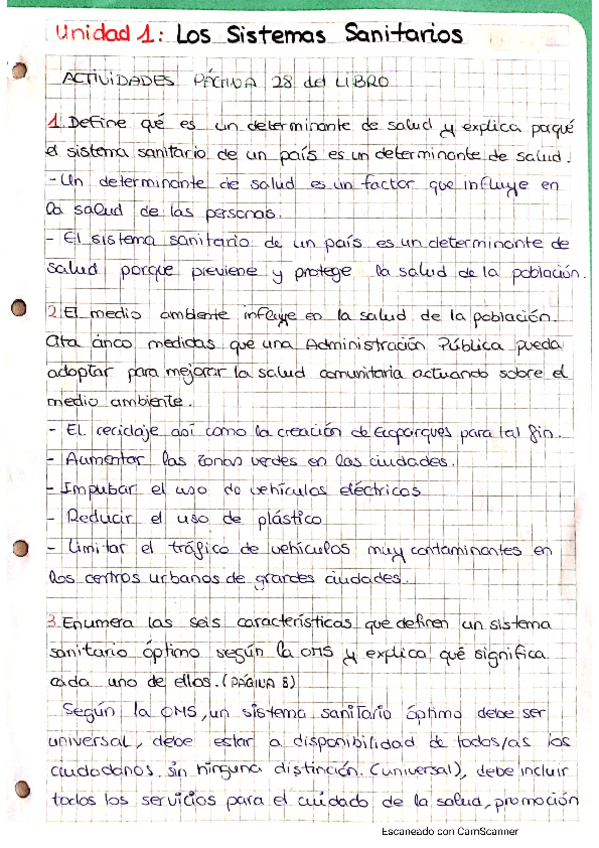 Unidad 1: Los Sistemas Sanitarios
ACTIVIDADES PÁGINA 28 del LIBRO
1. Define qé es un determinante de salud y explica porqué
el sistema sanitario de un país es un determinante de salud.
- Un determinante de salud es un factor que influye en
la salud de las personas.
- El sistema sanitario de un país es un determinante de
salud porque previene y protege la salud de la población.
2. El medio ambiente influye en la salud de la población.
Cita cinco medidas que una Administración Pública pueda
adoptar para mejorar la salud comunitaria actuando sobre el
medio ambiente.
- El reciclaje así como la creación de Ecoparques para tal fin.
- Aumentar las zonas verdes en las ciudades.
- Impulsar el uso de vehículos eléctricos
- Reducir el uso de plástico
- Limitar el tráfico de vehículos muy contaminantes en
los centros urbanos de grandes ciudades.
3. Enumera las seis características que definen un sistema
sanitario óptimo según la OMS y explica qué significa
cada uno de ellos. (PÁGINA 8)
Según la OMS, un sistema sanitario óptimo debe ser
universal, debe estar a disponibilidad de todos/as los
ciudadanos sin ninguna distinción. (universal), debe incluir
todos los servicios para el cuidado de la salud, promoción
Escaneado con CamScanner